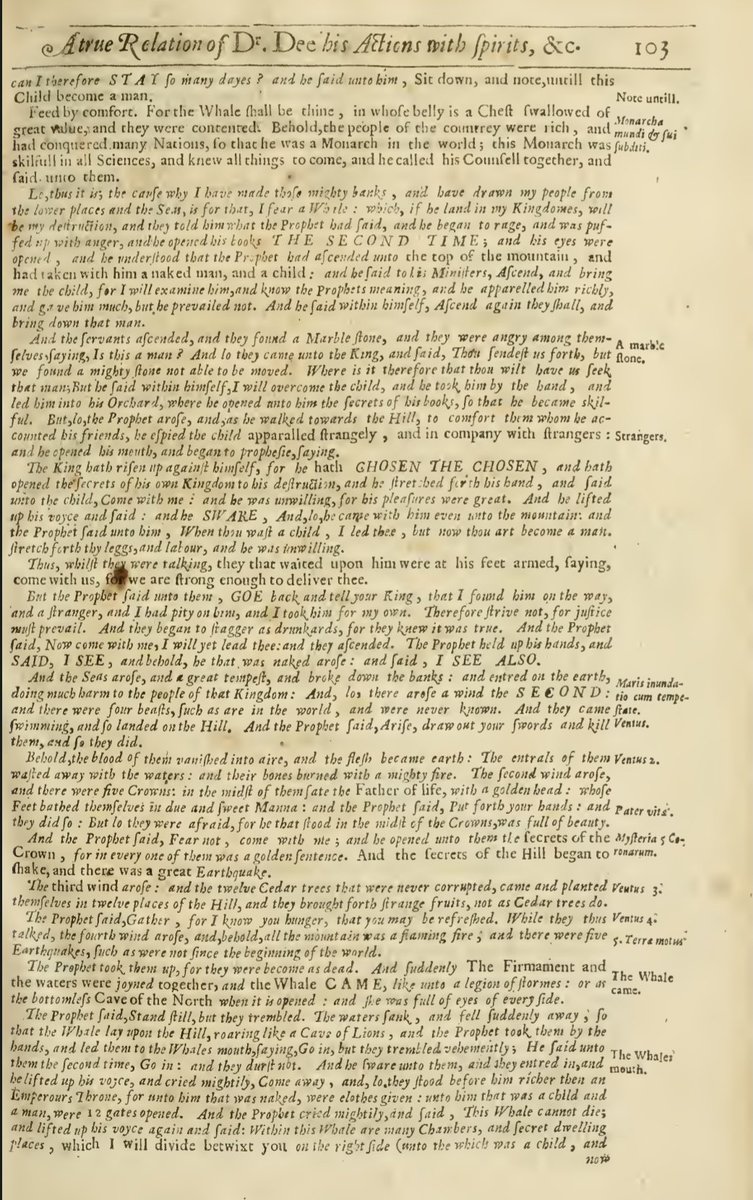 A true Relation of Dr. Dee his Actions with spirits, &c. 103
can I therefore STAY so many dayes? and he said unto him, Sit down, and note, untill this
Child become a man.
Note untill.
Feed by comfort. For the Whale shall be thine, in whose belly is a Chest swallowed of
great value, and they were contented. Behold, the people of the countrey were rich, and
Monarcha
had conquered many Nations, so that he was a Monarch in the world; this Monarch was
mundi & sui
skilfull in all Sciences, and knew all things to come, and he called his Counsell together, and
subditi.
said unto them.
Lo, thus it is; the cause why I have made those mighty banks, and have drawn my people from
the lower places and the Sea, is for that, I fear a Whale: which, if he land in my Kingdomes, will
be my destruction, and they told him what the Prophet had said, and he began to rage, and was puf-
fed up with anger, and he opened his books THE SECOND TIME; and his eyes were
opened, and he understood that the Prophet had ascended unto the top of the mountain, and
had taken with him a naked man, and a child: and he said to his Ministers, Ascend, and bring
me the child, for I will examine him, and know the Prophets meaning, and he apparelled him richly,
and gave him much, but he prevailed not. And he said within himself, Ascend again they shall, and
bring down that man.
And the servants ascended, and they found a Marble stone, and they were angry among them-
selves, saying, Is this a man? And lo they came unto the King, and said, Thou sendest us forth, but
A marble
we found a mighty stone not able to be moved. Where is it therefore that thou wilt have us seek
stone.
that man; But he said within himself, I will overcome the child, and he took him by the hand, and
led him into his Orchard, where he opened unto him the secrets of his books, so that he became skil-
ful. But, lo, the Prophet arose, and, as he walked towards the Hill, to comfort them whom he ac-
counted his friends, he espied the child apparalled strangely, and in company with strangers:
Strangers.
and he opened his mouth, and began to prophesie, saying.
The King hath risen up against himself, for he hath GHOSEN THE CHOSEN, and hath
opened the secrets of his own Kingdom to his destruction, and he stretched forth his hand, and said
unto the child, Come with me: and he was unwilling, for his pleasures were great. And he lifted
up his voyce and said: and he SWARE, And, lo, he came with him even unto the mountain: and
the Prophet said unto him, When thou wast a child, I led thee, but now thou art become a man.
stretch forth thy leggs, and labour, and he was unwilling.
Thus, whilst they were talking, they that waited upon him were at his feet armed, saying,
come with us, for we are strong enough to deliver thee.
But the Prophet said unto them, GOE back and tell your King, that I found him on the way,
and a stranger, and I had pity on him, and I took him for my own. Therefore strive not, for justice
must prevail. And they began to stagger as drunkards, for they knew it was true. And the Prophet
said, Now come with me, I will yet lead thee: and they ascended. The Prophet held up his hands, and
SAID, I SEE, and behold, he that was naked arose: and said, I SEE ALSO.
And the Seas arose, and a great tempest, and broke down the banks: and entred on the earth,
Maris inunda-
doing much harm to the people of that Kingdom: And, lo, there arose a wind the SECOND:
tio cum tempe-
and there were four beasts, such as are in the world, and were never known. And they came
state.
swimming, and so landed on the Hill. And the Prophet said, Arise, draw out your swords and kill
Ventus.
them, and so they did.
Behold, the blood of them vanished into aire, and the flesh became earth: The entrals of them
Ventus 2.
wasted away with the waters: and their bones burned with a mighty fire. The second wind arose,
and there were five Crowns: in the midst of them sate the Father of life, with a golden head: whose
Feet bathed themselves in due and sweet Manna: and the Prophet said, Put forth your hands: and
Pater vitæ.
they did so: But lo they were afraid, for he that stood in the midst of the Crowns, was full of beauty.
And the Prophet said, Fear not, come with me; and he opened unto them the secrets of the
Mysteria 5 Co-
Crown, for in every one of them was a golden sentence. And the secrets of the Hill began to
ronarum.
shake, and there was a great Earthquake.
The third wind arose: and the twelve Cedar trees that were never corrupted, came and planted
Ventus 3.
themselves in twelve places of the Hill, and they brought forth strange fruits, not as Cedar trees do.
The Prophet said, Gather, for I know you hunger, that you may be refreshed. While they thus
Ventus 4.
talked, the fourth wind arose, and, behold, all the mountain was a flaming fire; and there were five
5. Terra motus
Earthquakes, such as were not since the beginning of the world.
The Prophet took them up, for they were become as dead. And suddenly The Firmament and
The Whale
the waters were joyned together, and the Whale CAME, like unto a legion of stormes: or as
came.
the bottomless Cave of the North when it is opened: and she was full of eyes of every side.
The Prophet said, Stand still, but they trembled. The waters sank, and fell suddenly away, so
that the Whale lay upon the Hill, roaring like a Cave of Lions, and the Prophet took them by the
hands, and led them to the Whales mouth, saying, Go in, but they trembled vehemently; He said unto
The Whales
them the second time, Go in: and they durst not. And he sware unto them, and they entred in, and
mouth.
he lifted up his voyce, and cried mightily, Come away, and, lo, they stood before him richer then an
Emperours Throne, for unto him that was naked, were clothes given: unto him that was a child and
a man, were 12 gates opened. And the Prophet cried mightily, and said, This Whale cannot die;
and lifted up his voyce again and said: Within this Whale are many Chambers, and secret dwelling
places, which I will divide betwixt you on the right side (unto the which was a child, and
now